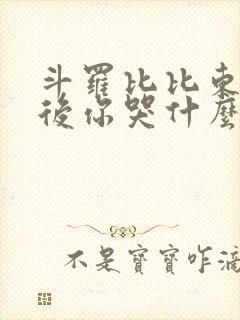 斗羅比比東
後你哭什麼
不是寶寶咋滴